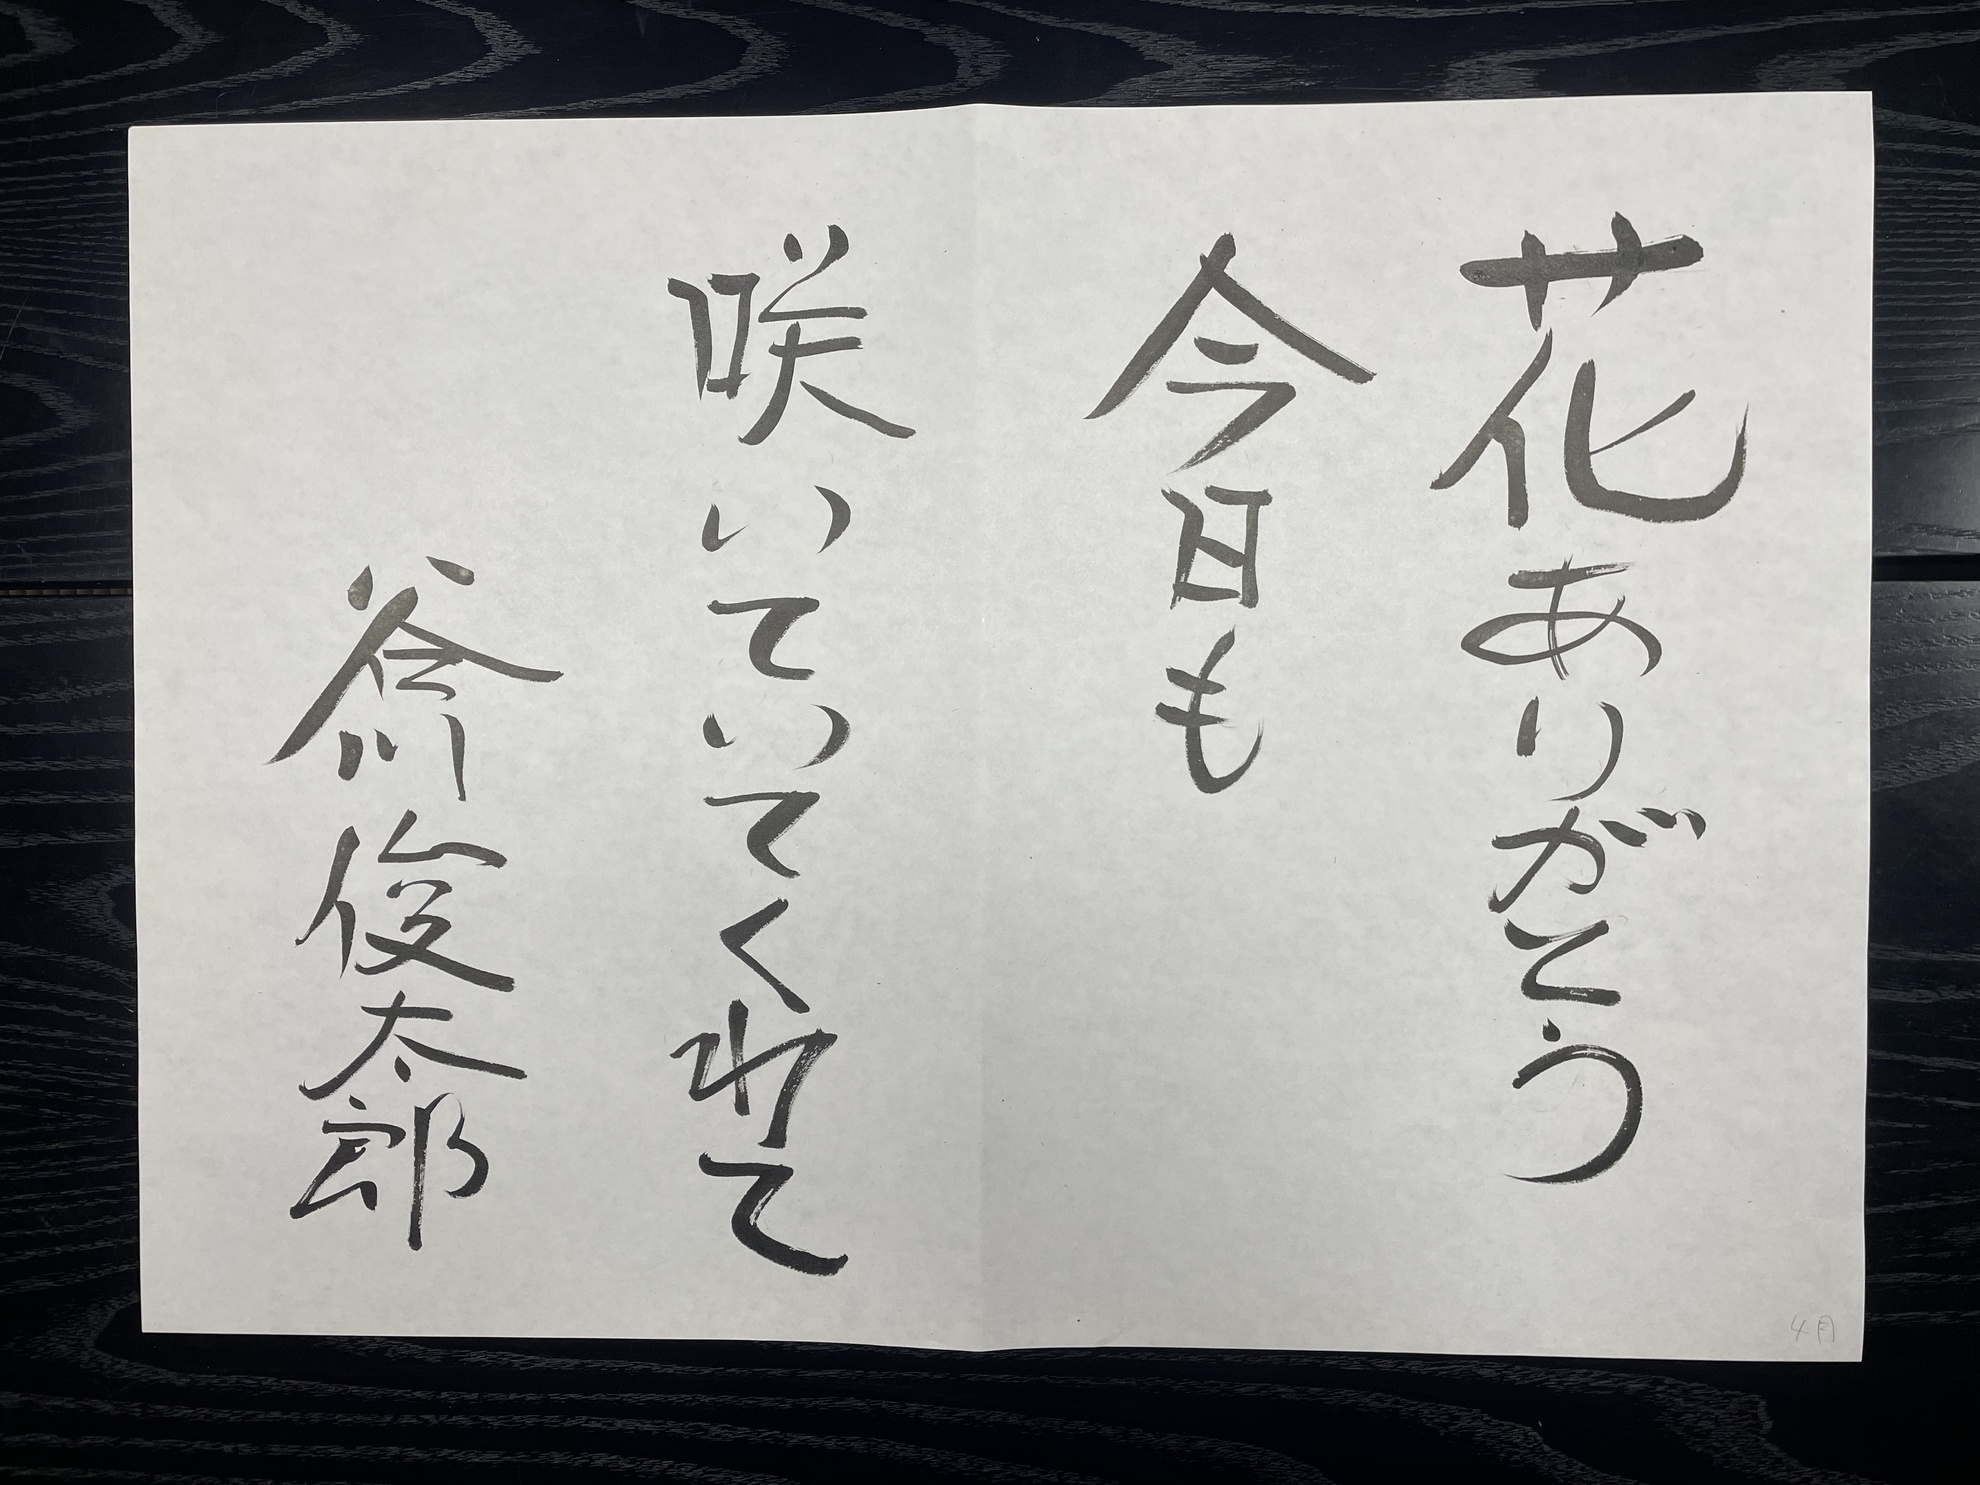 花ありがとう
今日も
咲いていてくれて
谷川俊太郎
4月